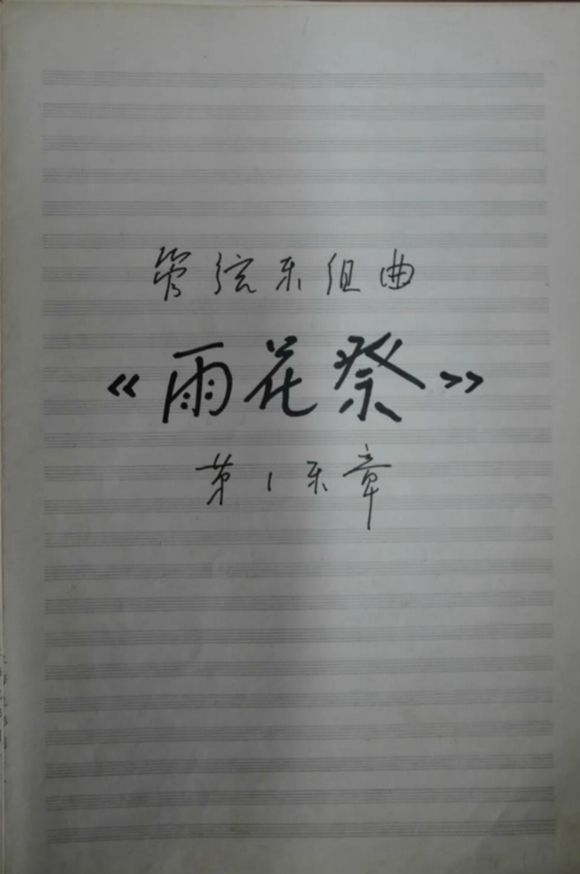 管弦乐组曲
《雨花祭》
第1乐章